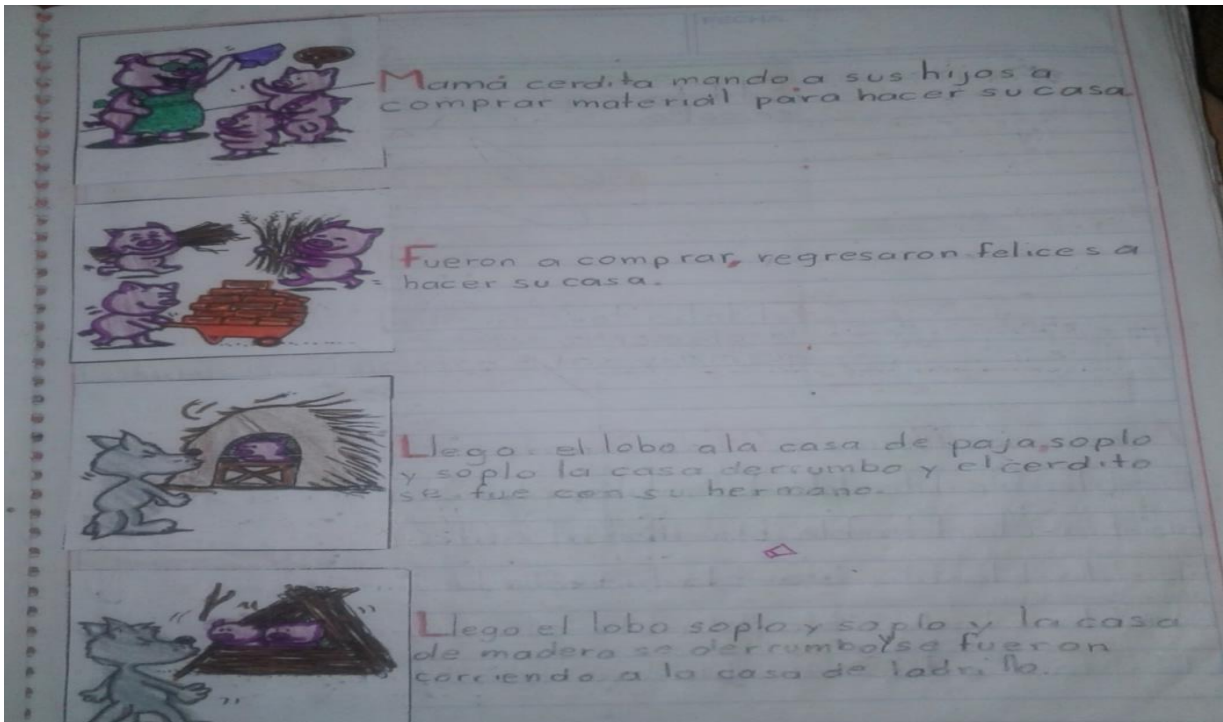 FECHA
Mamá cerdita mando a sus hijos a
comprar material para hacer su casa
Fueron a comprar, regresaron felices a
hacer su casa.
Llego el lobo ala casa de paja, soplo
y soplo la casa derrumbo y el cerdito
se fue con su hermano.
Llego el lobo soplo y soplo y la casa
de madera se derrumbo y se fueron
corriendo a la casa de ladrillo.